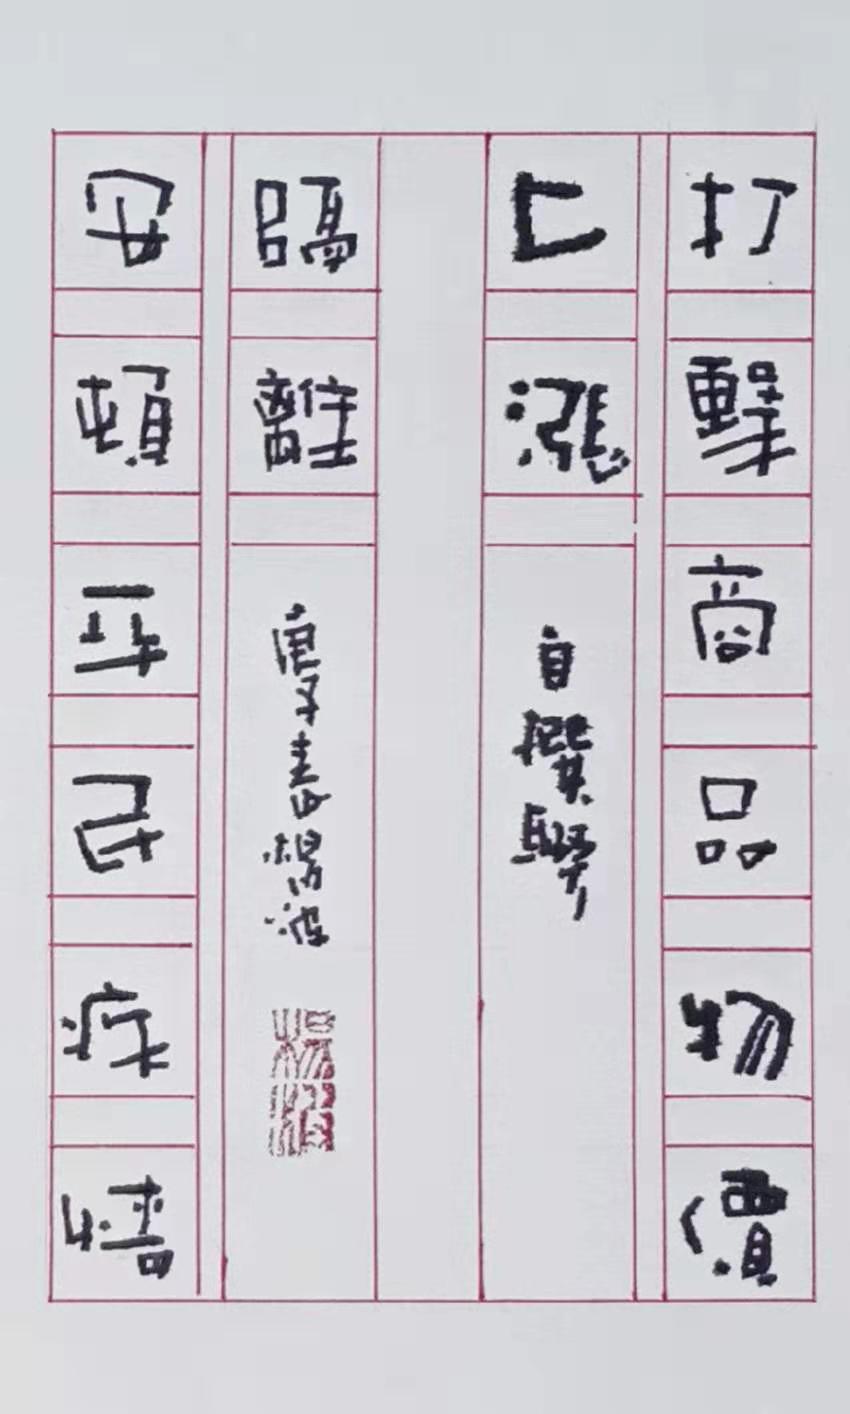 打擊商品物價
上漲
自撰聯
安頓平民病情
隔離
庚子春楊波
楊波